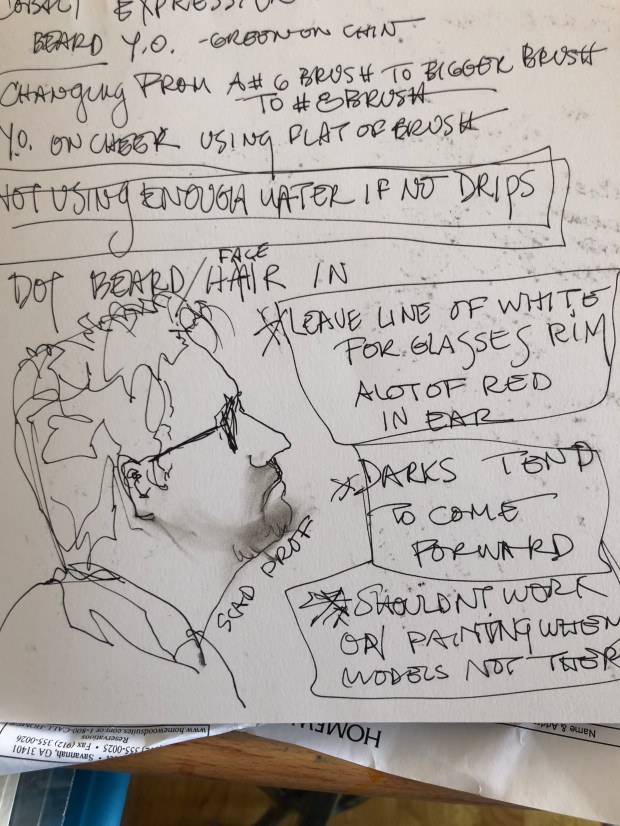 EXPRESSION
BEARD Y.O. - GREEN ON CHIN
CHANGING FROM A # 6 BRUSH TO BIGGER BRUSH
TO # 8 BRUSH
Y.O. ON CHEEK USING FLAT OF BRUSH
NOT USING ENOUGH WATER IF NO DRIPS
FACE
DOT BEARD/HAIR IN
LEAVE LINE OF WHITE
FOR GLASSES RIM
ALOT OF RED
IN EAR
DARKS TEND
TO COME
FORWARD
SHOULDNT WORK
ON PAINTING WHEN
MODELS NOT THER
SCAD PROF
Name & Addr
HOMEW
www.homewoodsuites.com or 1-800-CALL-HOME
Reservations
355-0025 • Fax (912) 355-0026
Savannah, GA 31401